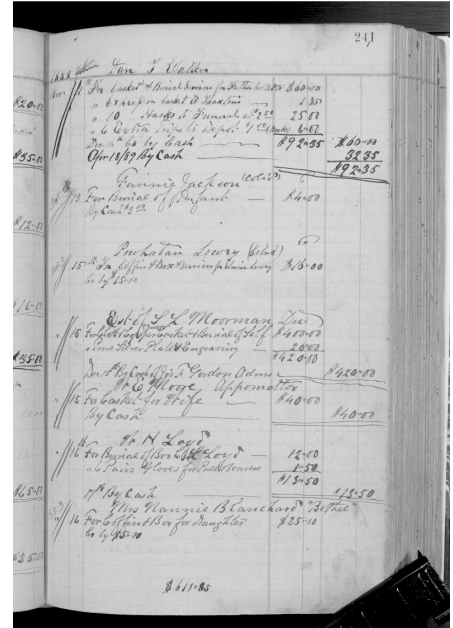 241
1888 Dan T Walden
Nov 11 To Casket & Burial Services for Father $60.00
" Express on Casket to 1.35
" 10 Hacks to Funeral at 2 50 25 00
" 6 Extra trips to Depot 6.00
Dec 14th Cr by Cash $92.35 $60.00
Apr 13/89 By Cash 32 35
$92.35
Fannie Jackson (Col'd)
13 For Burial of Infant $4.00
By Cash
Powhatan Lowry (Col'd)
15 To Coffin & Box & Services for Lowry $16.00
Cr by 15.00
Est of S L Moorman Dec'd
15 For Casket & Burial of Self $400.00
Silver Plate & Engraving 20.00
$420.00
Dec 15th By Cash of Jos. J Gordon Adms $420.00
E Moore Appomattox
15 For Casket for Wife $40.00
By Cash $40.00
W H Loyd
16 For Burial of Bro Loyd 12.00
" 6 Pairs Gloves for Pall Bearers 1.50
$13.50
17th By Cash $13.50
Mrs Nannie Blanchard "Bethel"
16 For Coffin & Box for Daughter $25.00
Cr by $5.00
$611.85
$20.00
$35.00
$12.00
$16.00
$35.00
$65.00
$35.00